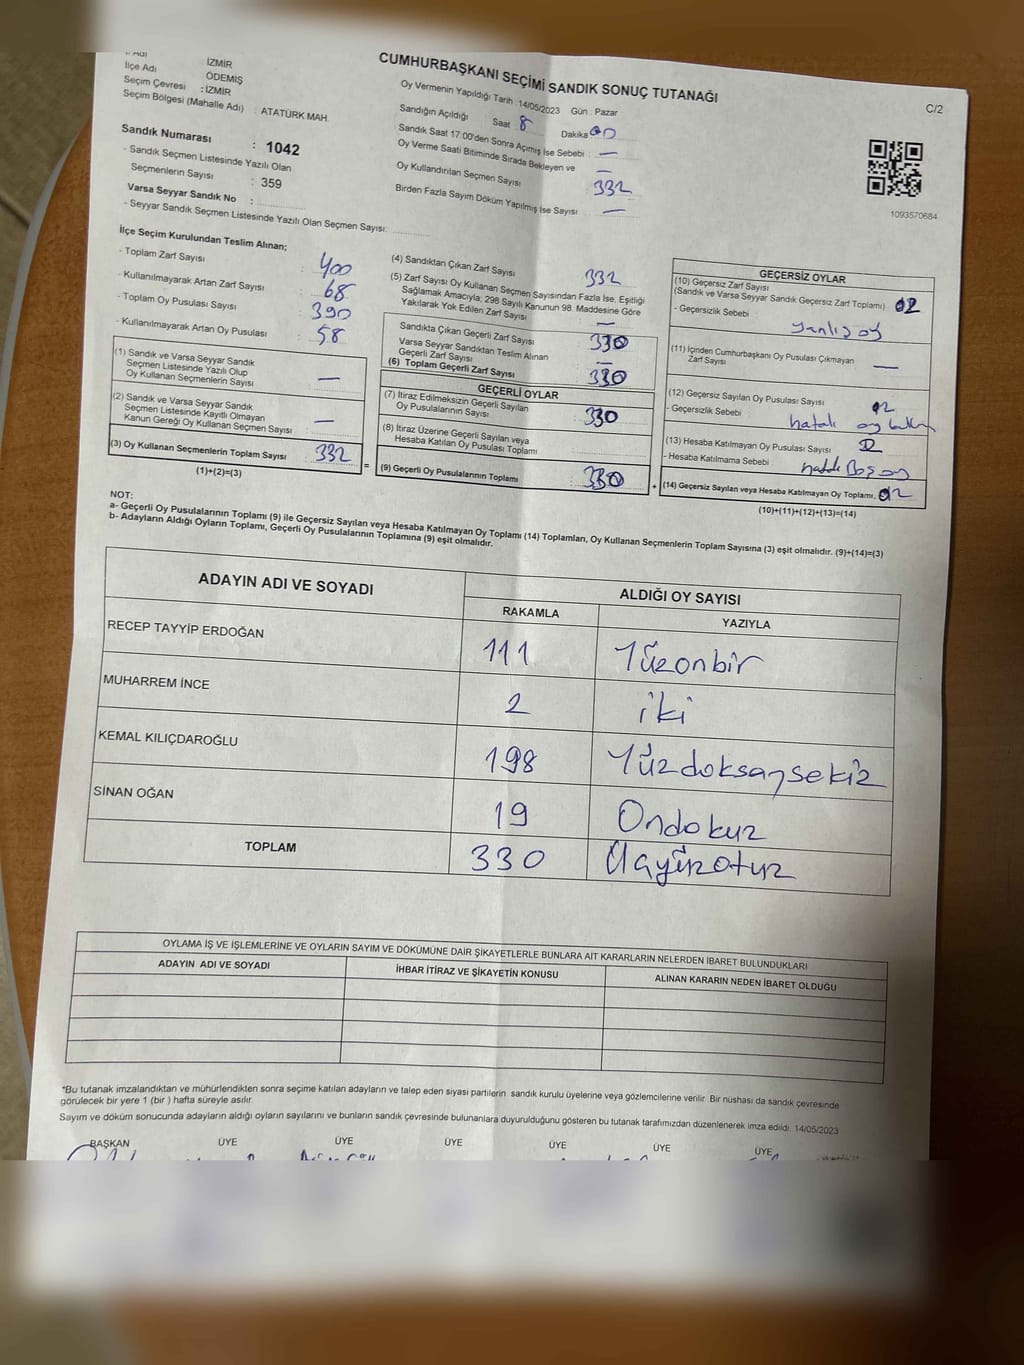 CUMHURBAŞKANI SEÇİMİ SANDIK SONUÇ TUTANAĞI
C/2
İZMİR
İlçe Adı : ÖDEMİŞ
Seçim Çevresi : İZMİR
Seçim Bölgesi (Mahalle Adı) : ATATÜRK MAH.
Sandık Numarası : 1042
- Sandık Seçmen Listesinde Yazılı Olan
Seçmenlerin Sayısı : 359
Varsa Seyyar Sandık No :
- Seyyar Sandık Seçmen Listesinde Yazılı Olan Seçmen Sayısı:
Oy Vermenin Yapıldığı Tarih 14/05/2023 Gün : Pazar
Sandığın Açıldığı Saat 8 Dakika 00
Sandık Saat 17:00'den Sonra Açımış İse Sebebi : —
Oy Verme Saati Bitiminde Sırada Bekleyen ve —
Oy Kullandırılan Seçmen Sayısı 332
Birden Fazla Sayım Döküm Yapılmış İse Sayısı —
1093570684
İlçe Seçim Kurulundan Teslim Alınan;
- Toplam Zarf Sayısı : 400
- Kullanılmayarak Artan Zarf Sayısı : 68
- Toplam Oy Pusulası Sayısı : 390
- Kullanılmayarak Artan Oy Pusulası : 58
(1) Sandık ve Varsa Seyyar Sandık
Seçmen Listesinde Yazılı Olup
Oy Kullanan Seçmenlerin Sayısı —
(2) Sandık ve Varsa Seyyar Sandık
Seçmen Listesinde Kayıtlı Olmayan
Kanun Gereği Oy Kullanan Seçmen Sayısı —
(3) Oy Kullanan Seçmenlerin Toplam Sayısı 332
(1)+(2)=(3)
(4) Sandıktan Çıkan Zarf Sayısı 332
(5) Zarf Sayısı Oy Kullanan Seçmen Sayısından Fazla İse, Eşitliği
Sağlamak Amacıyla; 298 Sayılı Kanunun 98. Maddesine Göre
Yakılarak Yok Edilen Zarf Sayısı —
Sandıkta Çıkan Geçerli Zarf Sayısı 330
Varsa Seyyar Sandıktan Teslim Alınan
Geçerli Zarf Sayısı —
(6) Toplam Geçerli Zarf Sayısı 330
GEÇERLİ OYLAR
(7) İtiraz Edilmeksizin Geçerli Sayılan
Oy Pusulalarının Sayısı 330
(8) İtiraz Üzerine Geçerli Sayılan veya
Hesaba Katılan Oy Pusulası Toplamı
(9) Geçerli Oy Pusulalarının Toplamı 330
GEÇERSİZ OYLAR
(10) Geçersiz Zarf Sayısı
(Sandık ve Varsa Seyyar Sandık Geçersiz Zarf Toplamı)
- Geçersizlik Sebebi : yanlış oy
(11) İçinden Cumhurbaşkanı Oy Pusulası Çıkmayan
Zarf Sayısı —
(12) Geçersiz Sayılan Oy Pusulası Sayısı
- Geçersizlik Sebebi hatalı oy
(13) Hesaba Katılmayan Oy Pusulası Sayısı
- Hesaba Katılmama Sebebi
(14) Geçersiz Sayılan veya Hesaba Katılmayan Oy Toplamı,
(10)+(11)+(12)+(13)=(14)
NOT:
a- Geçerli Oy Pusulalarının Toplamı (9) ile Geçersiz Sayılan veya Hesaba Katılmayan Oy Toplamı (14) Toplamları, Oy Kullanan Seçmenlerin Toplam Sayısına (3) eşit olmalıdır. (9)+(14)=(3)
b- Adayların Aldığı Oyların Toplamı, Geçerli Oy Pusulalarının Toplamına (9) eşit olmalıdır.
ADAYIN ADI VE SOYADI ALDIĞI OY SAYISI
RAKAMLA YAZIYLA
RECEP TAYYİP ERDOĞAN 111 Yüzonbir
MUHARREM İNCE 2 iki
KEMAL KILIÇDAROĞLU 198 Yüzdoksansekiz
SİNAN OĞAN 19 Ondokuz
TOPLAM 330 Üçyüzotuz
OYLAMA İŞ VE İŞLEMLERİNE VE OYLARIN SAYIM VE DÖKÜMÜNE DAİR ŞİKAYETLERLE BUNLARA AİT KARARLARIN NELERDEN İBARET BULUNDUKLARI
ADAYIN ADI VE SOYADI İHBAR İTİRAZ VE ŞİKAYETİN KONUSU ALINAN KARARIN NEDEN İBARET OLDUĞU
*Bu tutanak imzalandıktan ve mühürlendikten sonra seçime katılan adayların ve talep eden siyasi partilerin sandık kurulu üyelerine veya gözlemcilerine verilir. Bir nüshası da sandık çevresinde
görülecek bir yere 1 (bir ) hafta süreyle asılır.
Sayım ve döküm sonucunda adayların aldığı oyların sayılarını ve bunların sandık çevresinde bulunanlara duyurulduğunu gösteren bu tutanak tarafımızdan düzenlenerek imza edildi. 14/05/2023
BAŞKAN ÜYE ÜYE ÜYE ÜYE ÜYE ÜYE